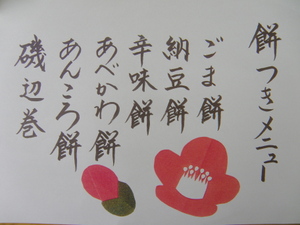 餅つきメニュー
ごま餅
納豆餅
辛味餅
あべかわ餅
あんころ餅
磯辺巻